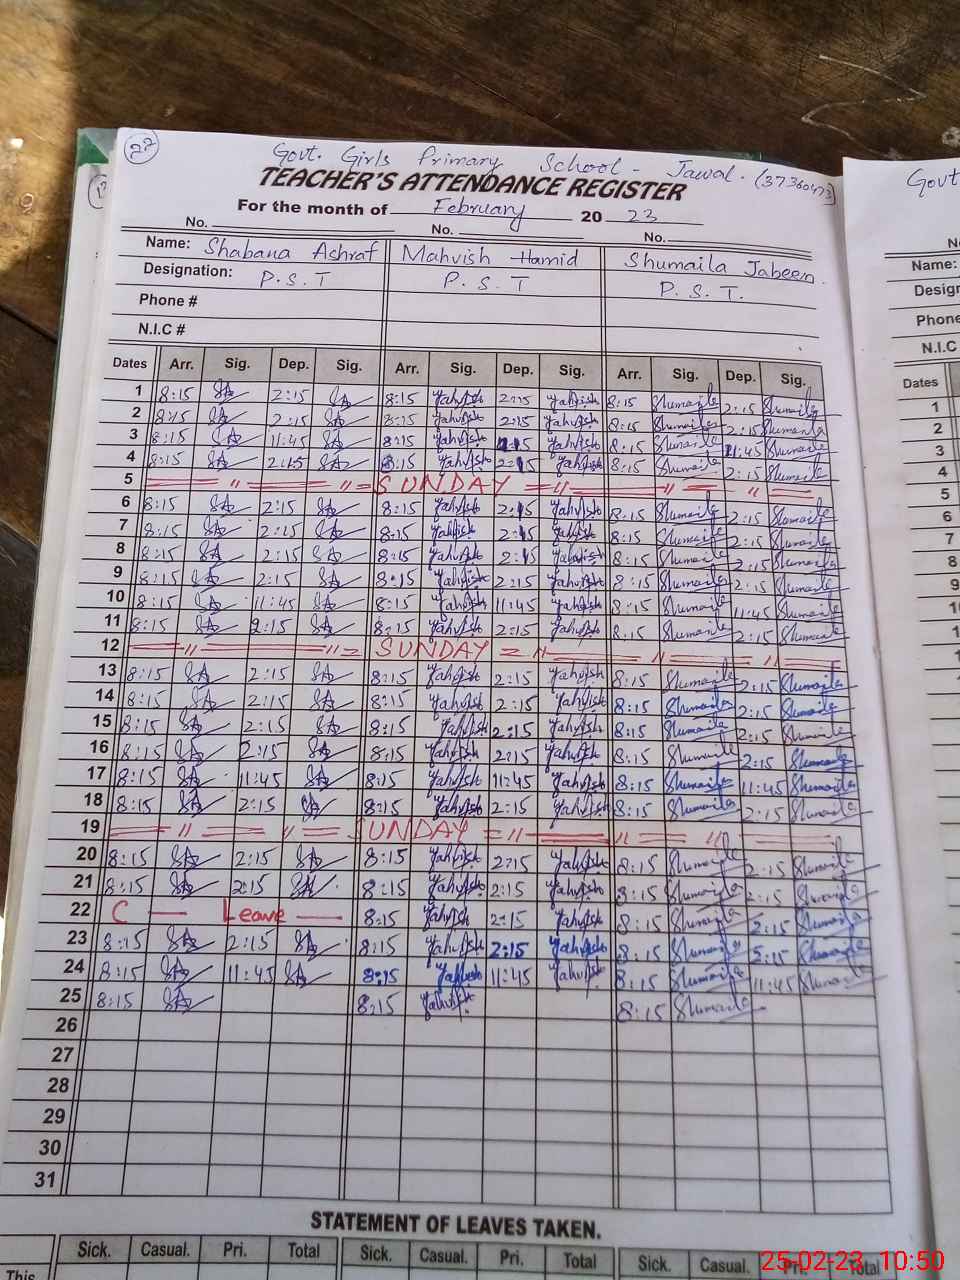 22
Govt. Girls Primary School - Jawal. (37360473)
TEACHER'S ATTENDANCE REGISTER
For the month of February 20 23
No. No. No.
Name: Shabana Ashraf Mahvish Hamid Shumaila Jabeen.
Designation: P.S.T P.S.T P.S.T.
Phone #
N.I.C #
Dates Arr. Sig. Dep. Sig. Arr. Sig. Dep. Sig. Arr. Sig. Dep. Sig.
1 8:15 SA 2:15 SA 8:15 Mahvish 2:15 Mahvish 8:15 Shumaila 2:15 Shumaila
2 8:15 SA 2:15 SA 8:15 Mahvish 2:15 Mahvish 8:15 Shumaila 2:15 Shumaila
3 8:15 SA 11:45 SA 8:15 Mahvish Mahvish 8:15 Shumaila 11:45 Shumaila
4 8:15 SA 2:15 SA 8:15 Mahvish 2:15 Mahvish 8:15 Shumaila 2:15 Shumaila
5 SUNDAY
6 8:15 SA 2:15 SA 8:15 Mahvish 2:15 Mahvish 8:15 Shumaila 2:15 Shumaila
7 8:15 SA 2:15 SA 8:15 Mahvish 2:15 Mahvish 8:15 Shumaila 2:15 Shumaila
8 8:15 SA 2:15 SA 8:15 Mahvish 2:15 Mahvish 8:15 Shumaila 2:15 Shumaila
9 8:15 SA 2:15 SA 8:15 Mahvish 2:15 Mahvish 8:15 Shumaila 2:15 Shumaila
10 8:15 SA 11:45 SA 8:15 Mahvish 11:45 Mahvish 8:15 Shumaila 11:45 Shumaila
11 8:15 SA 2:15 SA 8:15 Mahvish 2:15 Mahvish 8:15 Shumaila 2:15 Shumaila
12 SUNDAY
13 8:15 SA 2:15 SA 8:15 Mahvish 2:15 Mahvish 8:15 Shumaila 2:15 Shumaila
14 8:15 SA 2:15 SA 8:15 Mahvish 2:15 Mahvish 8:15 Shumaila 2:15 Shumaila
15 8:15 SA 2:15 SA 8:15 Mahvish 2:15 Mahvish 8:15 Shumaila 2:15 Shumaila
16 8:15 SA 2:15 SA 8:15 Mahvish 2:15 Mahvish 8:15 Shumaila 2:15 Shumaila
17 8:15 SA 11:45 SA 8:15 Mahvish 11:45 Mahvish 8:15 Shumaila 11:45 Shumaila
18 8:15 SA 2:15 SA 8:15 Mahvish 2:15 Mahvish 8:15 Shumaila 2:15 Shumaila
19 SUNDAY
20 8:15 SA 2:15 SA 8:15 Mahvish 2:15 Mahvish 8:15 Shumaila 2:15 Shumaila
21 8:15 SA 2:15 SA 8:15 Mahvish 2:15 Mahvish 8:15 Shumaila 2:15 Shumaila
22 C — Leave — 8:15 Mahvish 2:15 Mahvish 8:15 Shumaila 2:15 Shumaila
23 8:15 SA 2:15 SA 8:15 Mahvish 2:15 Mahvish 8:15 Shumaila 2:15 Shumaila
24 8:15 SA 11:45 SA 8:15 Mahvish 11:45 Mahvish 8:15 Shumaila 11:45 Shumaila
25 8:15 SA 8:15 Mahvish 8:15 Shumaila
26
27
28
29
30
31
STATEMENT OF LEAVES TAKEN.
Sick. Casual. Pri. Total Sick. Casual. Pri. Total Sick. Casual. Pri. Total
This
25-02-23 10:50
Govt
Name:
Phone
N.I.C
Dates
1
2
3
4
5
6
7
8
9